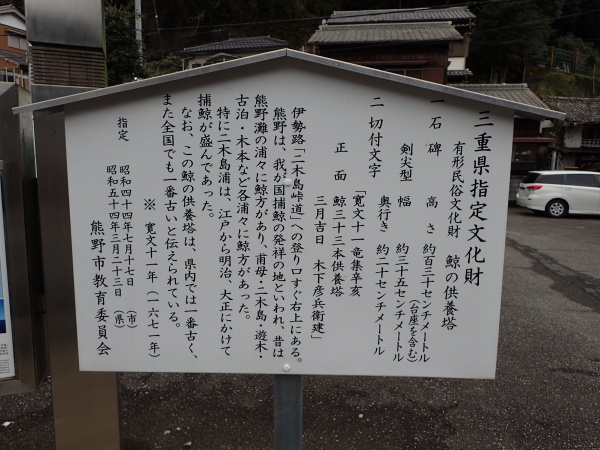 三重県指定文化財
有形民俗文化財　鯨の供養塔
一 石碑　高さ　約百三十センチメートル
（台座を含む）
剣尖型　幅　約三十五センチメートル
奥行き　約二十センチメートル
二 切付文字　「寛文十一竜集辛亥
正面　鯨三十三本供養塔
三月吉日　木下彦兵衛建」
伊勢路「二木島峠道」への登り口すぐ右上にある。
熊野は、我が国捕鯨の発祥の地といわれ、昔は
熊野灘の浦々に鯨方があり、甫母・二木島・遊木・
古泊・木本など各浦々に鯨方があった。
特に二木島浦は、江戸から明治、大正にかけて
捕鯨が盛んであった。
なお、この鯨の供養塔は、県内では一番古く、
また全国でも一番古いと伝えられている。
※ 寛文十一年（一六七一年）
指定　昭和四十四年七月十七日（市）
昭和五十四年三月二十三日（県）
熊野市教育委員会